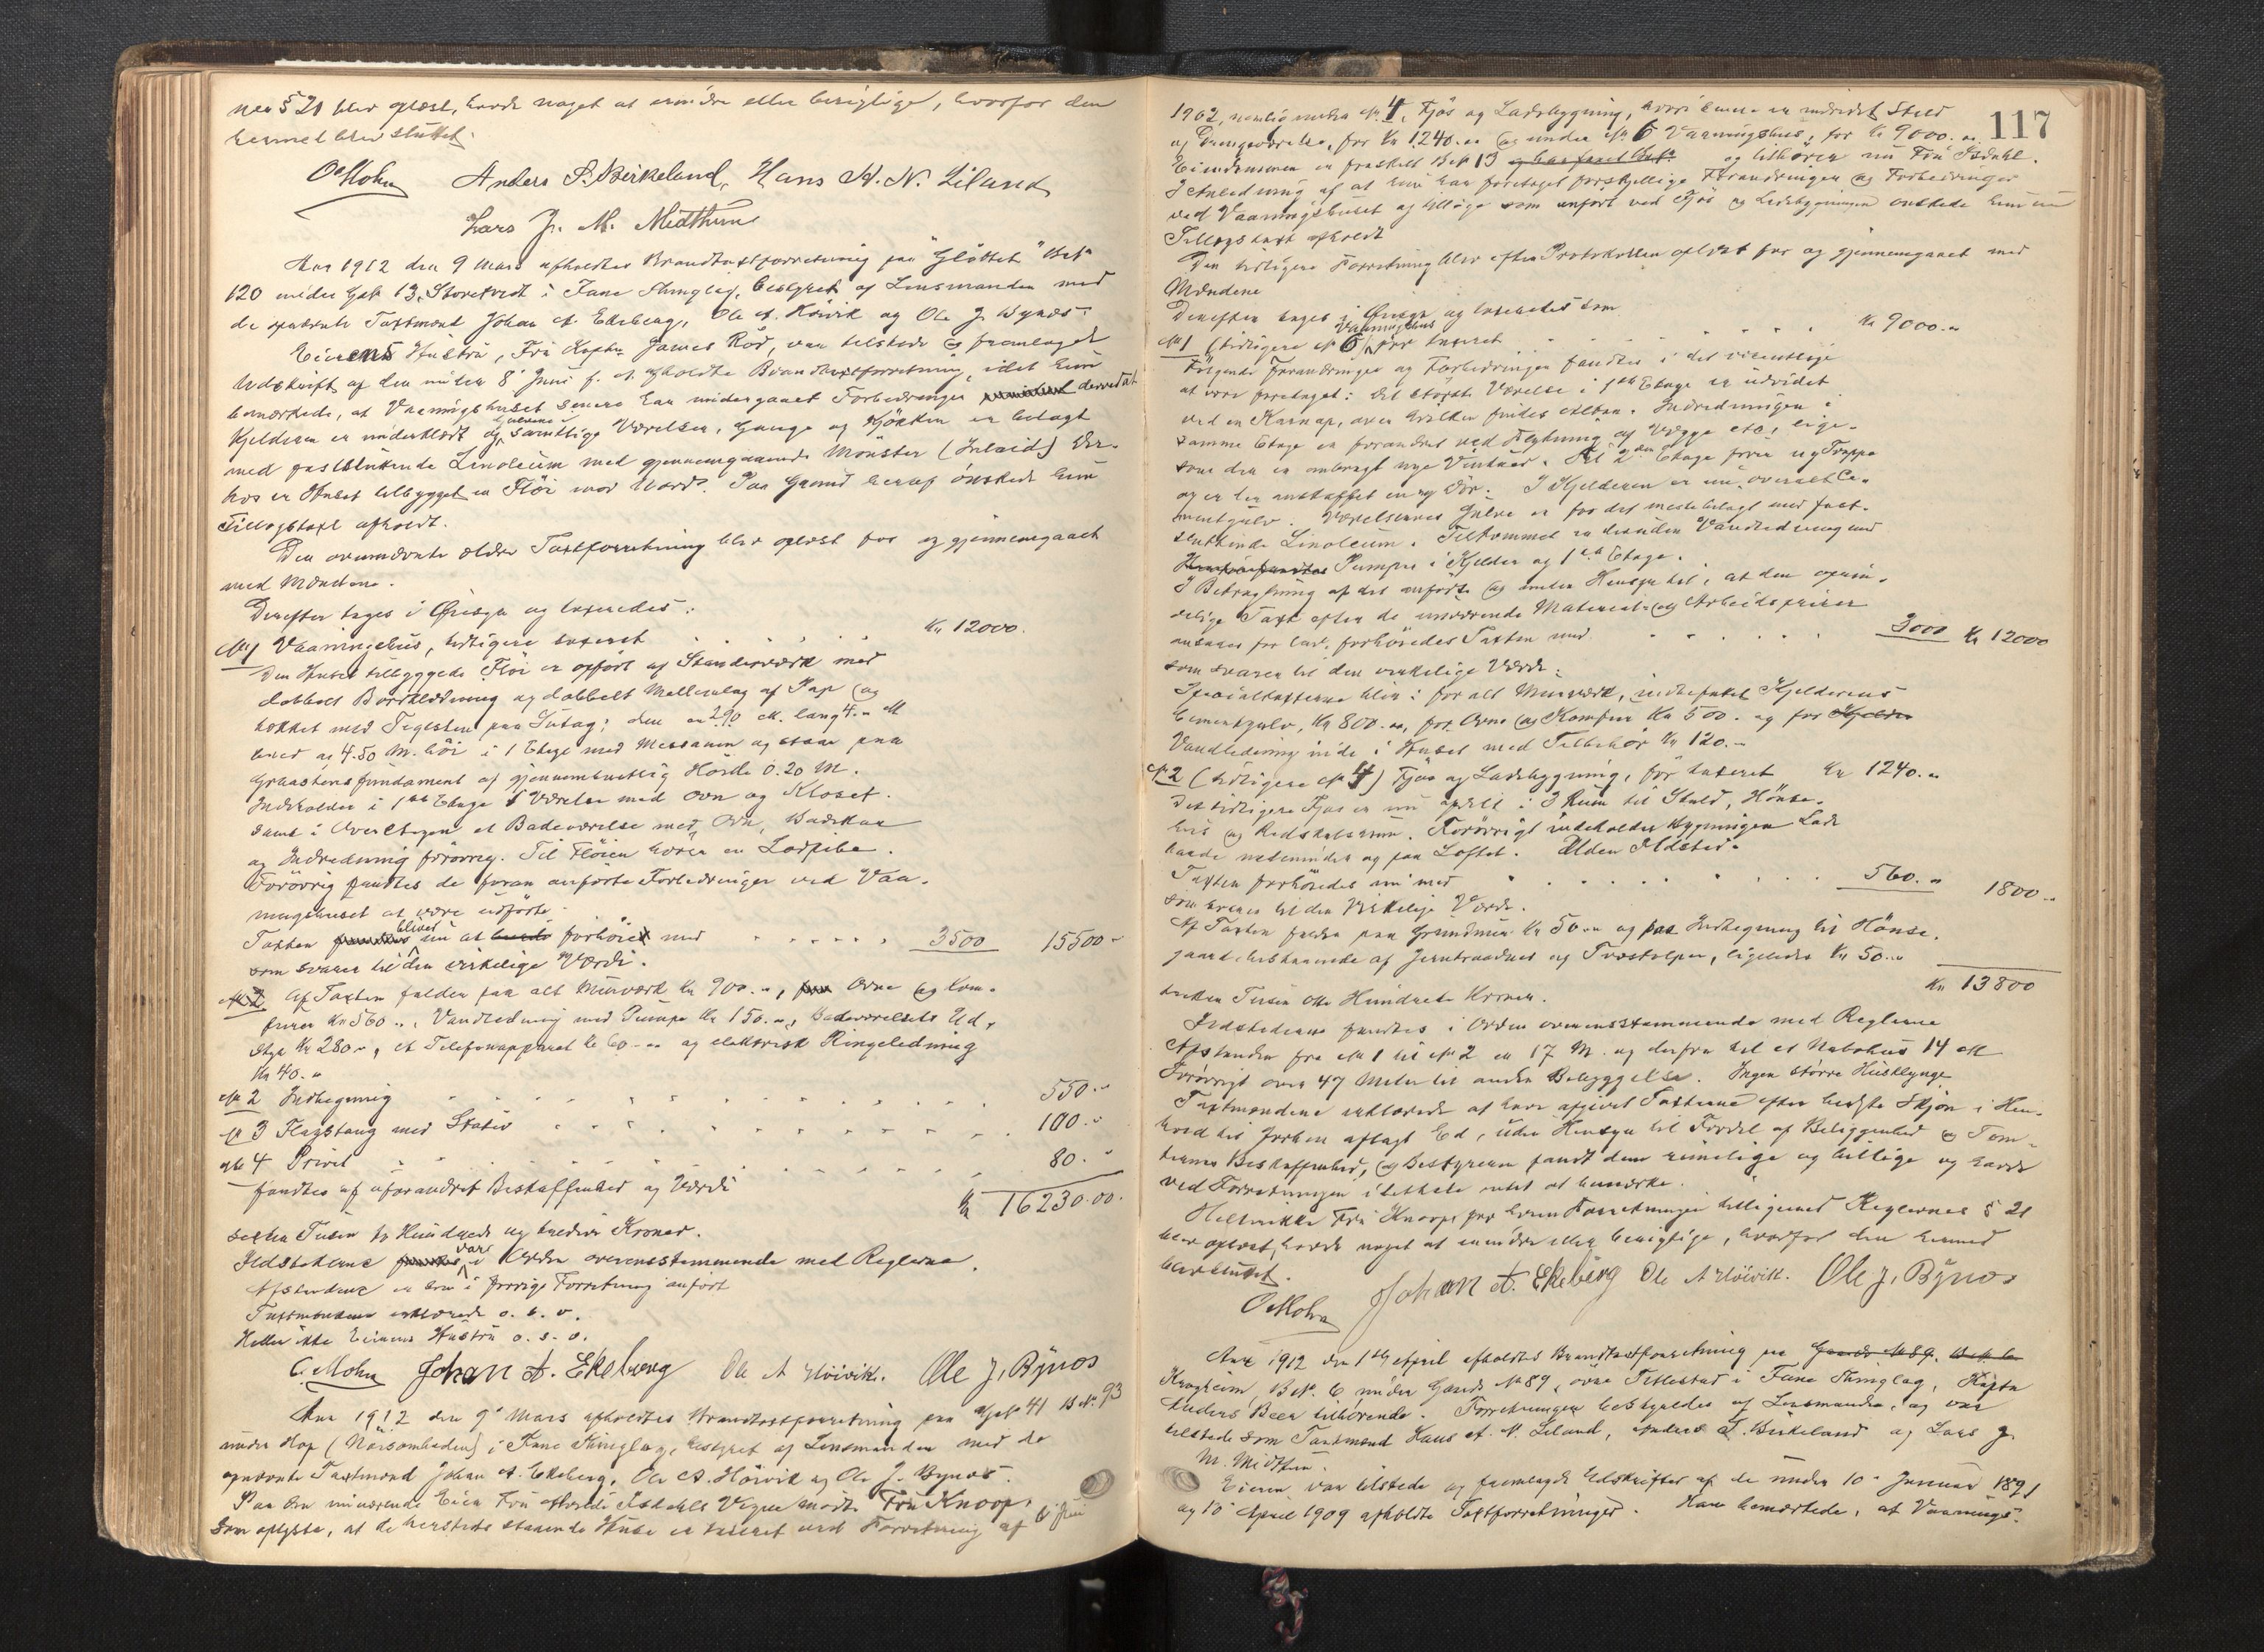 ves § 20 blev oplæst, havde noget at erindre eller berigtige, hvorfor den
hermed blev sluttet.
OMohn Anders S. Birkeland, Hans H. N. Liland
Lars J. M. Midthun
Aar 1912 den 9 Mars afholdtes Brandtaxtforretning paa "Gløttet" Bn.
120 under Gab 13, Storetvedt i Fane Thinglag, bestyret af Lensmanden med
de opnævnte Taxtmænd Johan A. Ekeberg, Ole A. Høivik og Ole J. Bynæs.
Eierens Hustru, Fru Kaptn. James Rød, var tilstede og fremlagde
Udskrift af den under 8 Juni f. A. afholdte Brandtaxtforretning, idet hun
bemærkede, at Vaaningshuset senere har undergaaet Forbedringer derved at
Kjelderen er underklædt og Gulvene i samtlige Værelser, Gange og Kjøkken er belagt
med fastklistrende Linoleum med gjennemgaaende Mønster (Inlaid) Der-
hos er Huset tilbygget en Fløi mod Nord. Paa Grund heraf ønskede hun
Tillægstaxt afholdt.
Den ovennævnte ældre Taxtforretning blev oplæst for og gjennemgaaet
med Mændene.
Derefter toges i Øiesyn og taxeredes:
No 1 Vaaningshus, tidligere taxeret Kr 12000.
Den Huset tilbyggede Fløi er opført af Stenderværk med
dobbelt Bordklædning og dobbelt Mellemlag af Pap og
tækket med Teglsten paa Sutag; den er 2.90 M. lang 4.- M
bred og 4.50 M. høi i 1 Etage med Messanin og staar paa
Graastens fundament af gjennemsnitlig Høide 0.20 M.
Indeholder i 1ste Etage 1 Værelse med Ovn og Kloset.
samt i Overetagen et Badeværelse med Ovn, Badekar
og Indredning forøvrig. Til Fløien hører en Lodpibe.
Forøvrig fandtes de foran anførte Forbedringer ved Vaa-
ningshuset at være udførte.
Taxten bliver nu at forhøie med 3500 15500 -
som svarer til den virkelige Værdi.
Af Taxten falder paa alt Murværk Kr 900.-, Ovne og Kom-
furer Kr 560.-, Vandledning med Pumpe Kr 150.-, Badeværelsets Ud-
styr Kr 280.-, et Telefonapparat Kr 60.- og elektrisk Ringeledning
Kr 40.-
No 2 Indhegning 550.-
No 3 Flagstang med Stativ 100.-
No 4 Privet 80.-
fandtes af uforandret Beskaffenhed og Værdi
Kr 16230.00.
sexten Tusen to Hundrede og tredive Kroner.
Ildstederne var i Orden overensstemmende med Reglerne.
Afstandene er som i forrige Forretning anført
Taxtmændene erklærede o. s. v.
Heller ikke Eierens Hustru o. s. v.
O. Mohn Johan A. Ekeberg Ole A Høivik. Ole J. Bynos
Aar 1912 den 9de Mars afholdtes Brandtaxtforretning paa Gab 41 B.N. 93
under Hop (Nørsomheden) i Fane Thinglag, bestyret af Lensmanden med de
opnævnte Taxtmænd Johan A. Ekeberg, Ole A. Høivik og Ole J. Bynæs.
Paa den nuværende Eier Fru Isdahls Vegne mødte Fru Knoop,
som oplyste, at de herstedts staaende Huse er taxeret ved Forretning af 6 Juni
117
1902, nemlig under No 4, Fjøs og Ladebygning, hvori senere er indredet Stald
og Drengeværelse, for Kr 1240.- og under No 6 Vaaningshus, for Kr 9000.-
Eiendommen er fraskilt Bn 13 og tilhører nu Fru Isdahl.
I Anledning af at hun har foretaget forskjellige Forandringer og Forbedringer
ved Vaaningshuset og tillige som anført ved Fjøs og Ladebygningen ønskede hun nu
Tillægstaxt afholdt
Den tidligere Forretning blev efter Protokollen oplæst for og gjennemgaaet med
Mændene
Derefter toges i Øiesyn og taxeredes som
No 1 (tidligere No 6) Vaaningshus før taxeret Kr 9000.-
Følgende Forandringer og Forbedringer fandtes i det væsentlige
at være foretaget: det største Værelse i 1ste Etage er udvidet
ved en Karnap, over hvilken findes Altan. Indredningen i
samme Etage er forandret ved Flytning af Vægge etc, lige-
som der er anbragt nye Vinduer. Til 2den Etage fører ny Trappe
og er her anskaffet en ny Dør. I Kjelderen er nu overalt Ce-
mentgulv. Værelsernes Gulve er for det meste belagt med fast-
klistrende Linoleum. Tilkommet er desuden Vandledning med
Pumper i Kjelder og 1ste Etage.
I Betragtning af det anførte og under Hensyn til, at den oprin-
delige Taxt efter de nuværende Material- og Arbeidspriser
ansaaes for lav, forhøiedes Taxten med 3000 Kr 12000
som svarer til den virkelige Værdi.
Specialtaxterne blir: for alt Murværk, indbefattet Kjelderens
Cementgulv, Kr 800.-, for Ovne og Komfur Kr 500.- og for
Vandledning inde i Huset med Tilbehør Kr 120.-
No 2 (tidligere No 4) Fjøs og Ladebygning, før taxeret Kr 1240.-
Det tidligere Fjøs er nu opdelt i 3 Rum til Stald, Hønse-
hus og Redskabsrum. Forøvrigt indeholder Bygningen Lade
baade nedenunder og paa Loftet. Uden Ildsted.
Taxten forhøiedes nu med 560.- 1800.-
som svarer til den virkelige Værdi.
Af Taxten falder paa Grundmur Kr 50.- og paa Indhegning til Hønse-
gaard, bestaaende af Jerntraadnet og Træstolper, ligeledes Kr 50.-
Kr 13800
tretten Tusen otte Hundrede Kroner.
Ildstederne fandtes i Orden overensstemmende med Reglerne
Afstanden fra No 1 til No 2 er 17 M. og derfra til et Nabohus 14 M
Forøvrigt over 47 Meter til anden Bebyggelse. Ingen større Husklynge
Taxtmændene erklærede at have afgivet Taxterne efter bedste Skjøn i Hen-
hold til forhen aflagt Ed, uden Hensyn til Fordel af Beliggenhed og Tom-
ternes Beskaffenhed, og Bestyreren fandt dem rimelige og billige og havde
ved Forretningen intet at bemærke.
Heller ikke Fru Knoop, for hvem Forretningen tilligemed Reglernes § 21
blev oplæst, havde noget at erindre eller berigtige, hvorfor den hermed
blev sluttet.
OMohn Johan A. Ekeberg Ole A Høivik. Ole J. Bynos
Aar 1912 den 1ste April afholdtes Brandtaxtforretning paa Gaards No 89, B.N. 6
Krogheim B.N. 6 under Gaards No 89, øvre Titlestad i Fane Thinglag, Kaptn
Anders Beer tilhørende. Forretningen bestyredes af Lensmanden, og var
tilstede som Taxtmænd Hans H. N. Liland, Anders S. Birkeland og Lars J.
M. Midthun.
Eieren var tilstede og fremlagde Udskrifter af de under 10 Januar 1891
og 10 April 1909 afholdte Taxtforretninger. Han bemærkede, at Vaanings-